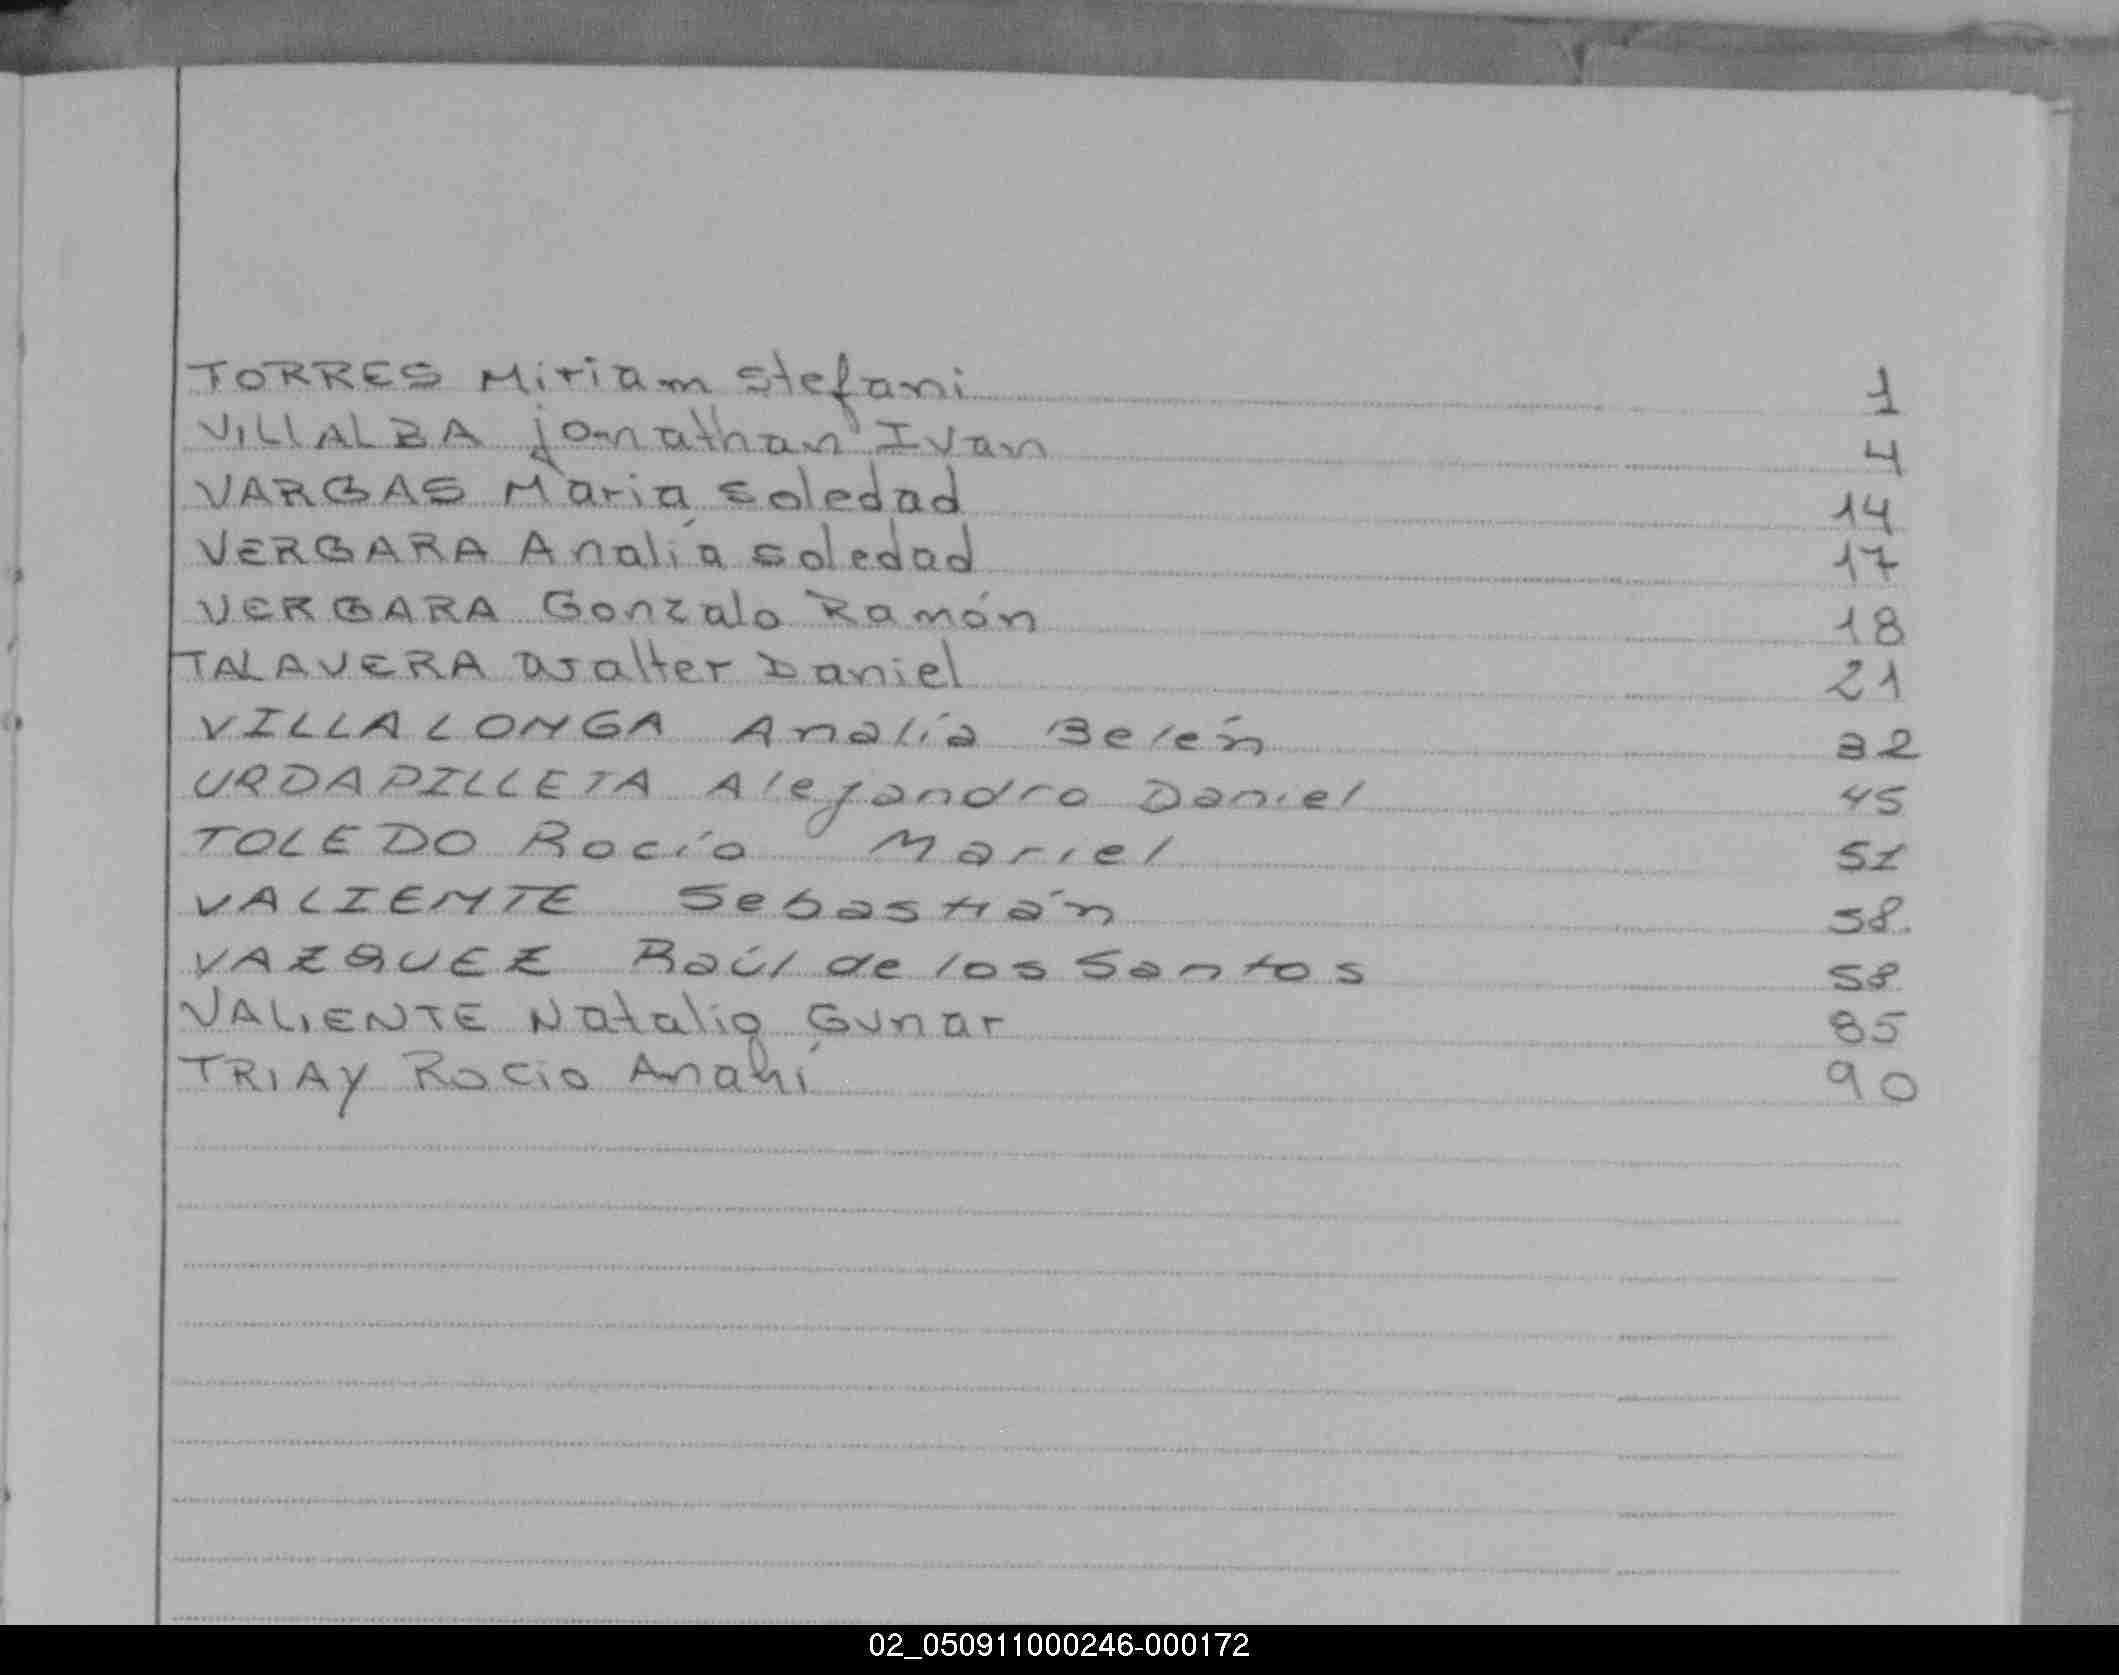 TORRES Miriam Stefani 1
VILLALBA jonathan Ivan 4
VARGAS Maria Soledad 14
VERGARA Analía Soledad 17
VERGARA Gonzalo Ramón 18
TALAVERA Walter Daniel 21
VILLALONGA Analía Belén 32
URDAPILLETA Alejandro Daniel 45
TOLEDO Rocío Mariel 51
VALIENTE Sebastián 58
VAZQUEZ Raúl de los Santos 58
VALIENTE Natalia Gunar 85
TRIAY Rocio Anahí 90
02_050911000246-000172